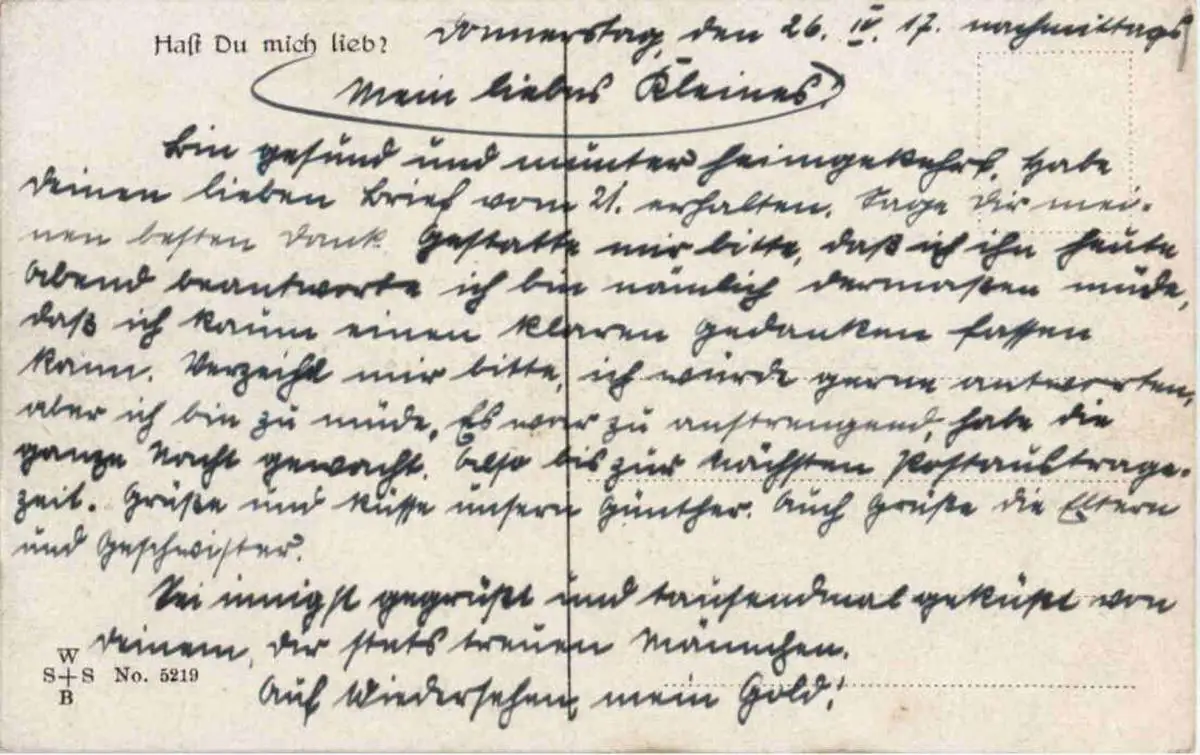 Hast Du mich lieb?
Donnerstag, den 26. IV. 17. nachmittags
Mein liebes Kleines!
Bin gesund und munter heimgekehrt. Habe
deinen lieben Brief vom 21. erhalten. Sage dir mei-
nen besten Dank. Gestatte mir bitte, daß ich ihn heute
Abend beantworte ich bin nämlich dermaßen müde,
daß ich kaum einen klaren Gedanken fassen
kann. Verzeiht mir bitte, ich würde gerne antworten,
aber ich bin zu müde. Es war zu anstrengend, habe die
ganze Nacht gewacht. Also bis zur nächsten Postaustrage-
zeit. Grüße und küsse unsern Günther. Auch Grüße die Eltern
und Geschwister.
Sei innigst gegrüßt und tausendmal geküßt von
deinem, dir stets treuen Männchen.
Auf Wiedersehen, mein Gold!
W
S+S No. 5219
B